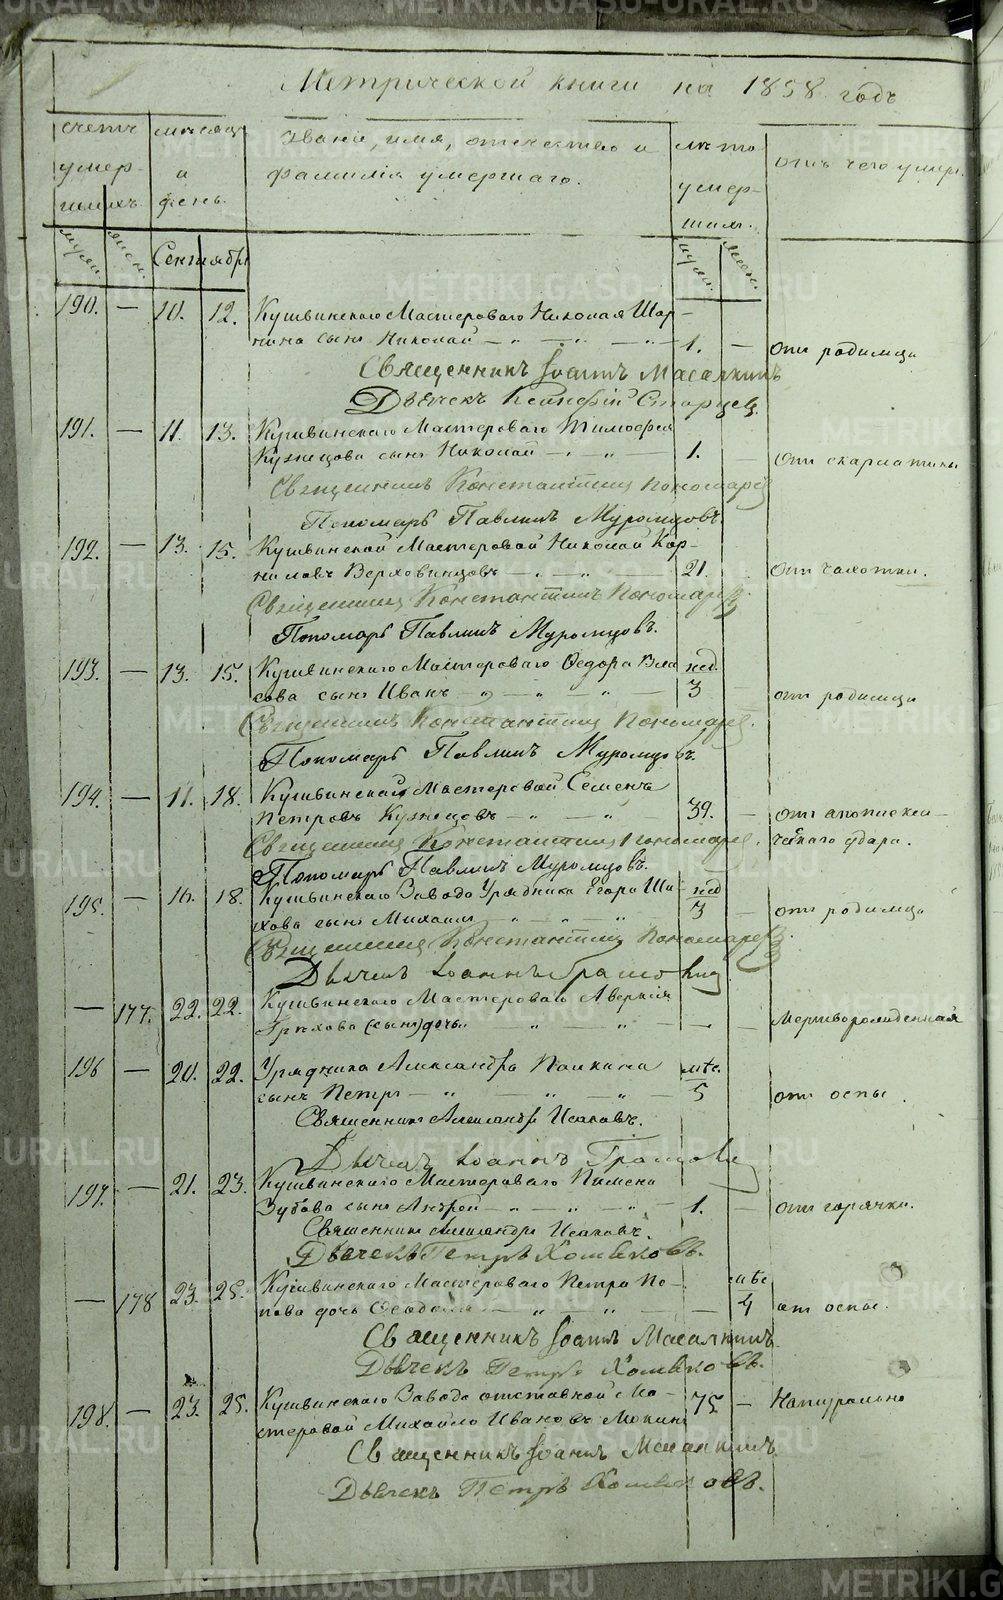 Метрической книги на 1858 годъ
счетъ умер-шихъ.
муж. жен.
месяцъ и день.
Сентябрь
Звание, имя, отчество и фамилия умершаго.
лета умер-ших.
муж. жен.
отъ чего умер.
190. — 10. 12. Кушвинскаго Мастероваго Николая Шар-
нина сынъ Николай — 1. — отъ родимца
Священникъ Іоаннъ Масалкинъ
Дьячекъ Старцев.
191. — 11. 13. Кушвинскаго Мастероваго Тимофея
Кузнецова сынъ Николай — 1. отъ скарлатины
Священникъ Константинъ Пономарев
Пономарь Павлинъ Муромцовъ.
192. — 13. 15. Кушвинской Мастеровой Николай Кор-
ниловъ Верховинцовъ — 21. отъ чахотки.
Священникъ Константинъ Пономарев
Пономарь Павлинъ Муромцовъ.
193. — 13. 15. Кушвинскаго Мастероваго Федора Вла нед.
сова сынъ Иванъ — 3 отъ родимца
Священникъ Константинъ Пономарев.
Пономарь Павлинъ Муромцовъ.
194. — 11. 18. Кушвинской Мастеровой Семенъ
Петровъ Кузнецовъ — 39. — отъ апоплекси-
ческаго удара.
Священникъ Константинъ Пономарев.
Пономарь Павлинъ Муромцовъ.
195. — 16. 18. Кушвинскаго Завода Урядника Егора Ши- нед
хова сынъ Михаилъ — 3 — отъ родимца
Священникъ Константинъ Пономарев
Дьячекъ Іоаннъ
— 177. 22. 22. Кушвинскаго Мастероваго Аверкія
Грехова (сынъ) дочь. — Мертворожденная
196 — 20. 22. Урядника Александра Папкина мес.
сынъ Петръ — 5 отъ оспы.
Священникъ Александръ Исаковъ.
Дьячекъ Іоаннъ
197. — 21. 23. Кушвинскаго Мастероваго Пимена
Зубова сынъ Андрей — 1. — отъ горячки.
Священникъ Александръ Исаковъ.
Дьячекъ Петръ Хомяковъ.
— 178 23. 25. Кушвинскаго Мастероваго Петра По- мес
пова дочь — 4 отъ оспы.
Священникъ Іоаннъ Масалкинъ.
Дьячекъ Петръ Хомяковъ.
198. — 23. 25. Кушвинскаго Завода отставной Ма- 75 — Натурально
стеровой Михайло Ивановъ Мокинъ
Священникъ Іоаннъ Масалкинъ
Дьячекъ Петръ Хомяковъ.
METRIKI.GASO-URAL.RU